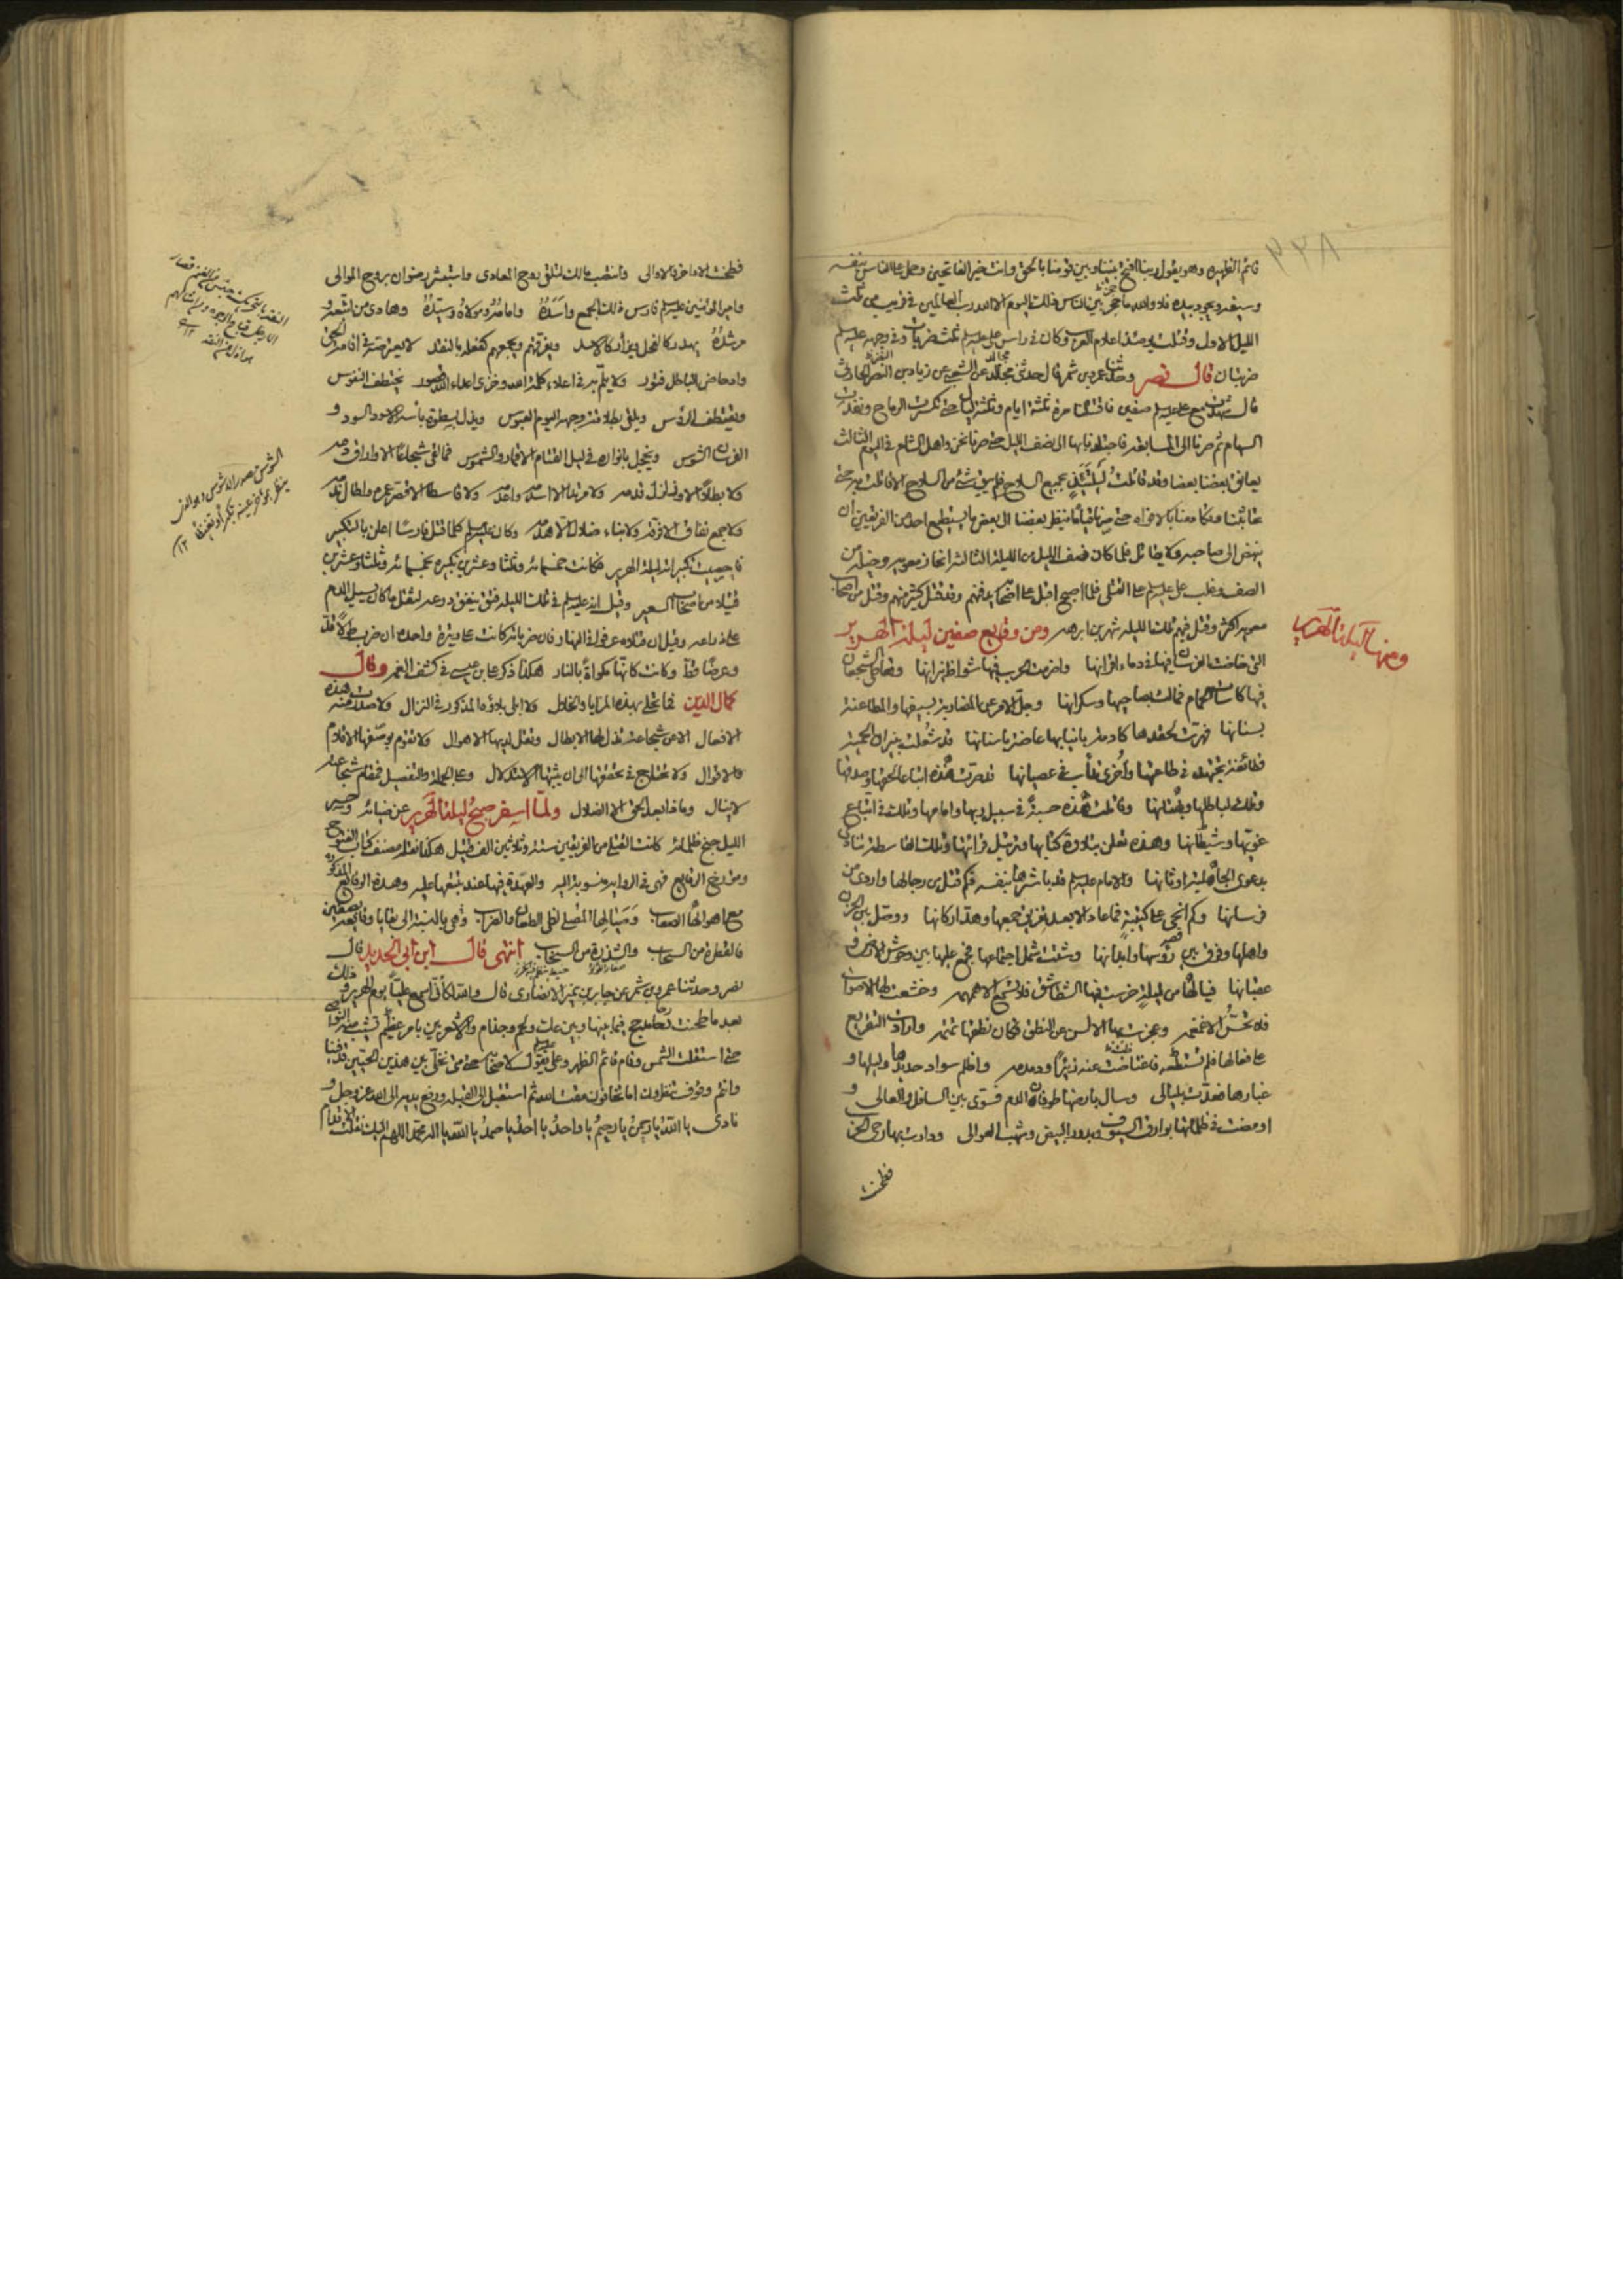 قائم الظهيره وهو يقول ربنا افتح بيننا وبين قومنا بالحق وانت خير الفاتحين وحمل على الناس بنفسه
وسيفه مجرد بيده فلا والله ما حجز بين الناس ذلك اليوم الا الله رب العالمين في قريب من ثلث
الليل الاول وقتلت يومئذ اعلام العرب وكان في راس علي عليه السلم ثلث ضربات وفي وجهه عليه السلم
ضربتان قال نصر وحدثنا عمر بن شمر قال حدثني مجالد عن الشعبي عن زياد بن النضر الحارثي
قال شهدت مع علي عليه السلم صفين فاقتتلنا مرة ثلثة ايام وثلثة ليال حتى تكسرت الرماح ونفدت
السهام ثم صرنا الى المسايفه فاجتلدنا بها الى نصف الليل حتى صرنا نحن واهل الشام في اليوم الثالث
يعانق بعضنا بعضا وقد قاتلت ليلتئذ بجميع السلاح فلم يبق شئ من السلاح الا قاتلت به حتى
تحاثينا وتكادمنا بالافواه حتى صرنا قياما ينظر بعضنا الى بعض ما يستطيع احد من الفريقين ان
ينهض الى صاحبه ولا يقاتل فلما كان نصف الليل من الليلة الثالثة انحاز معويه وخيله من
الصف وغلب علي عليه السلم على القتلى فلما اصبح اقبل على اصحابه يدفنهم وقد قتل كثير منهم وقتل من اصحاب
معويه اكثر وقتل فيهم تلك الليله شمر بن ابرهه ومن وقايع صفين ليلة الهرير
ومنها ليلة الهرير
التي خاضت الفرسان فيها في دماء اقرانها واضرمت الحرب فيها شواظ نيرانها وتعاطى الشجعان
فيها كاسات الحمام فمالت بصاحيها وسكرانها وجل الامر عن المضاربة بسيفها والمطاعنة
بسنانها فهرت لحقدها كادمة بانيابها عاضة باسنانها قد شعلت نيران الحمية
فطائفة تجتهد في طاعتها واخرى تدأب في عصيانها قد صبرت هذه اتباعا لحقها وصدقها
وتلك لباطلها وبهتانها وقاتلت هذه حسبة في سبيل ربها وامامها وتلك في اتباع
غويها وشيطانها وهذه تعلن بتلاوة كتابها وترتيل قرآنها وتلك
بدعوى الجاهلية واوثانها والامام عليه السلم قد باشرها بنفسه فكم قتل من رجالها واردى من
فرسانها وكم انحى على كتيبة فما عاد الا بعد تفريق جمعها وهد اركانها ووصل بين الحزن
واهلها وفرق بين رؤسها وابدانها وشتت شمل اجتماعها فجمع عليها بين وحوش الارض و
عقبانها فيا لها من ليلة خرست فيها الشقاشق فلا تسمع الا همهمه وخشعت لها الاصوات
فلا تحس الا غمغمه وعجزت بها الالسن عن النطق فكان نطقها تمتمه وارادت التقريع
على فعالها فلم تستطعه فاعتاضت عنه زئيرا ودمدمه واظلم سواد حديدها وليلها و
غبارها فعدت بليالي وسال بارضها طوفان الدم فسوى بين السافل والعالي و
اومضت في ظلمائها بوارق السيوف وبدور البيض وشهب العوالي ودارت بها رحى الحرب
فطحنت
فطحنت الاواخر والاوالي وانتصب مالك لتلقي روح المعادي واستبشر رضوان بروح الموالي
وامير المؤمنين عليه السلم فارس ذلك الجمع واسده وامامه ومولاه وسيده وهادي من اتبعه و
مرشده يهدر كالفحل ويزأر كالاسد ويفرقهم ويجمعهم كفعله بالنقد لا يعترضه في اقامة الحق
وادحاض الباطل فتور ولا يلم به في اعلاء كلمة الله وخزي اعداء الله قصور يختطف النفوس
ويقتطف الرؤس ويلقى بطلاقة وجهه اليوم العبوس ويذل بسطوة بأسه الاسود السود و
الفرسان الشوس ويخجل بانواره في ليل القتام الاقمار والشموس فما لقي شجاعا الا واراق دمه
ولا بطلا الا وزلزل قدمه ولا مريدا الا اعدمه ولا قاسطا الا وقصر عمره واطال ندمه
ولا جمع نفاق الا فرقه ولا بناء ضلال الا هدمه وكان عليه السلم كلما قتل فارسا اعلن بالتكبير
فاحصيت تكبيراته ليلة الهرير فكانت خمسمائة وثلثا وعشرين تكبيره بخمسمائة وثلث وعشرين
قتيلا من اصحاب السعير وقيل انه عليه السلم في تلك الليله فتق نيفق درعه لثقل ما كان يسيل من الدم
على ذراعه وقيل ان قتلاه عرفوا في النهار فان ضرباته كانت على وتيرة واحده ان ضرب طولا قد
وعرضا قط وكانت كانها مكواة بالنار هكذا ذكر علي بن عيسى في كشف الغمه وقال
كمال الدين فما تحلى بهذه المزايا والخلال ولا ابلى بلاؤه المذكور في النزال ولا صدرت منه هذه
الافعال الا عن شجاعة تذل لها الابطال وتقل لديها الاهوال ولا تقوم بوصفها الاقلام
والاقوال ولا تحتاج في تحققها الى ان يثبتها الاستدلال وعلى الجملة والتفصيل فمقام شجاعته
لا ينال وما ذا بعد الحق الا الضلال ولما اسفر صبح ليلة الهرير عن ضيائه وحسر
الليل جنح ظلمائه كانت القتلى من الفريقين ستة وثلاثين الف قتيل هكذا نقله مصنف كتاب الفتوح
ومؤرخ الوقايع فهي في الروايه منسوبة اليه والعهدة فيها عند تتبعها عليه وهذه الوقايع المذكوره
مع اهوالها الصعاب ومصالها المصلى لظى الطعان والضراب وهي بالنسبة الى بقايا وقايعه بصفين
كالقطرة من السحاب والشذرة من السخاب انتهى قال ابن ابي الحديد قال
نصر وحدثنا عمرو بن شمر عن جابر بن نمير الانصاري قال والله لكأني اسمع عليا يوم الهرير و ذلك
بعد ما طحنت رحا مذحج فيما بينها وبين عك ولخم وجذام والاشعريين بامر عظيم تشيب منه النواصي
حتى استقلت الشمس وقام قائم الظهر وعلي عليه السلم يقول لاصحابه حتى متى نخلي بين هذين الحيين قد فنيا
وانتم وقوف تنظرون اما تخافون مقت الله ثم استقبل الى القبله ورفع يديه الى الله عز وجل و
نادى يا الله يا رحمن يا رحيم يا واحد يا احد يا صمد يا الله يا اله محمد اللهم اليك نقلت الاقدام
النقد بالتحريك جنس من الغنم قصار
الارجل قباح الوجوه